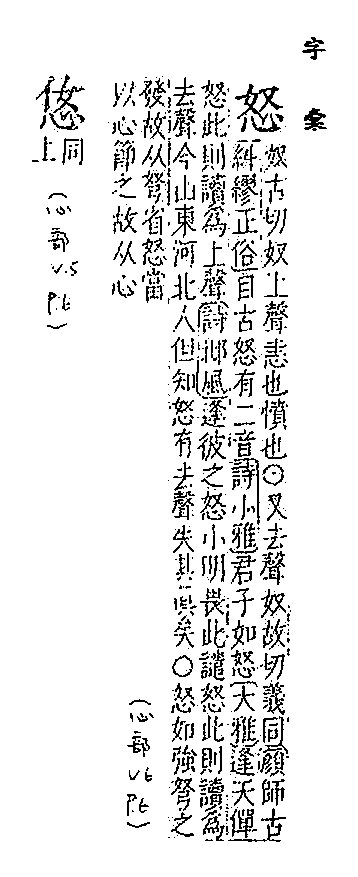 字彙
怒
奴古切奴上聲恚也憤也○又去聲奴故切義同顏師古
糾繆正俗自古怒有二音詩小雅君子如怒大雅逢天僤
怒此則讀為上聲詩邶風逢彼之怒小明畏此譴怒此則讀為
去聲今山東河北人但知怒有去聲失其真矣○怒如強弩之
發故从弩省怒當
以心節之故从心
(心部 V.6 P.6)
㤪
同上
(心部 V.5 P.6)